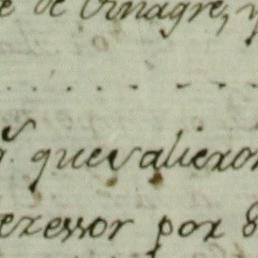 de Vinagre, y
q.e que valieron
texessor por 8